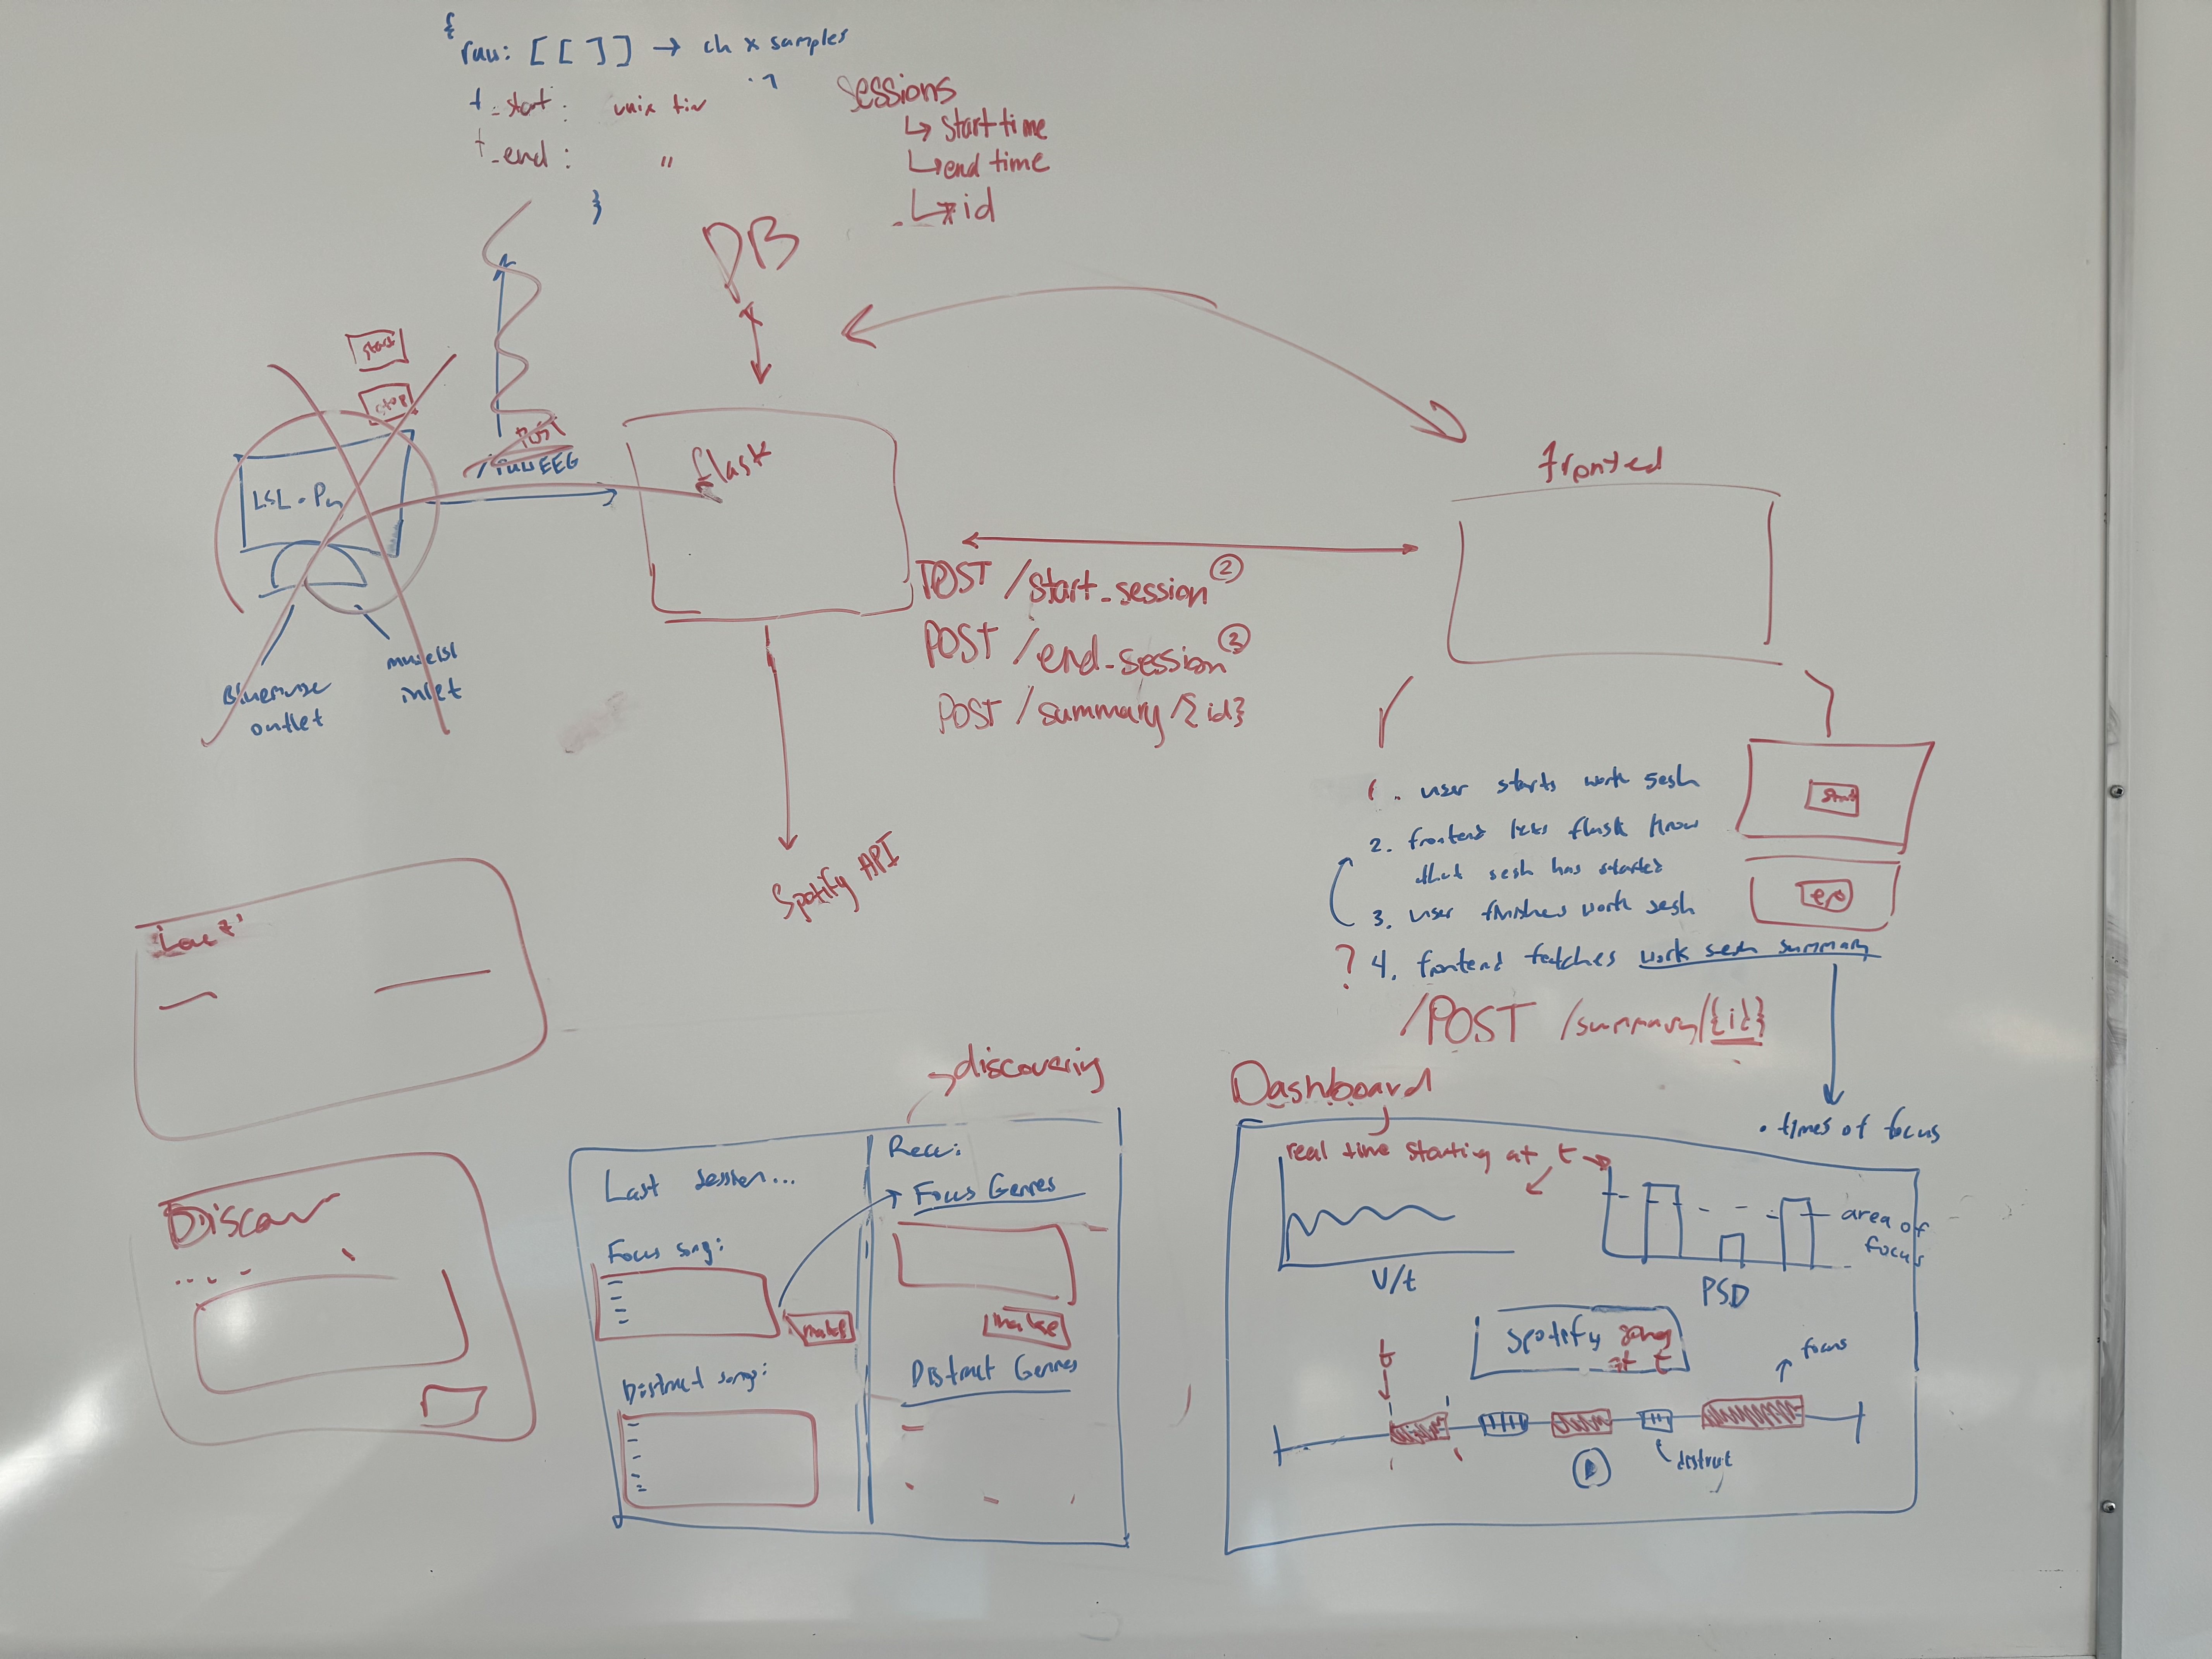 {
raw: [ [ ] ] → ch x samples
t_start: unix tim
t_end: "
}
Sessions
↳ start time
↳ end time
↳ *id
DB
start
stop
POST
/rawEEG
LSL-Py
Bluemuse
outlet
muselsl
inlet
flask
Spotify API
fronted
POST /start_session ②
POST /end_session ③
POST /summary/{id}
1. user starts work sesh
2. frontend lets flask know
that sesh has started
3. user finishes work sesh
? 4. frontend fetches work sesh summary
start
/POST /summary/{id}
• times of focus
Discov
→ discovering
Last session...
Focus song:
make
Distract songs:
Recc:
Focus Genres
make
Distract Genres
Dashboard
real time starting at t →
V/t
PSD
area of
focus
Spotify song
at t
t
focus
distract